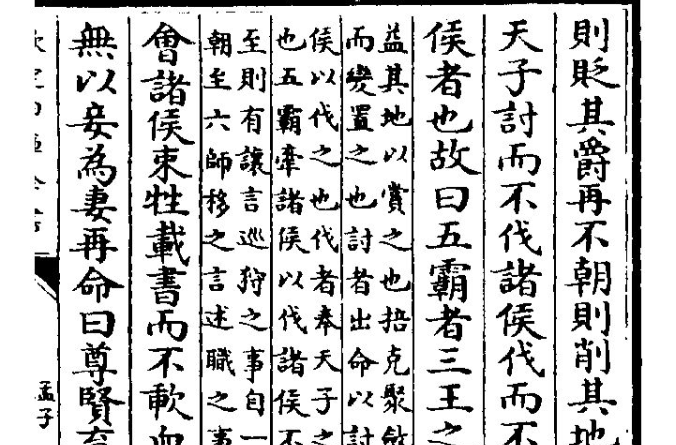 則貶其爵再不朝則削其地
天子討而不伐諸侯伐而不
侯者也故曰五霸者三王之
益其地以賞之也掊克聚斂
而變置之也討者出命以討
侯以伐之也伐者奉天子之
也五霸牽諸侯以伐諸侯不
至則有讓言巡狩之事自一
朝至六師移之言述職之事
會諸侯束牲載書而不歃血
無以妾為妻再命曰尊賢育
孟子